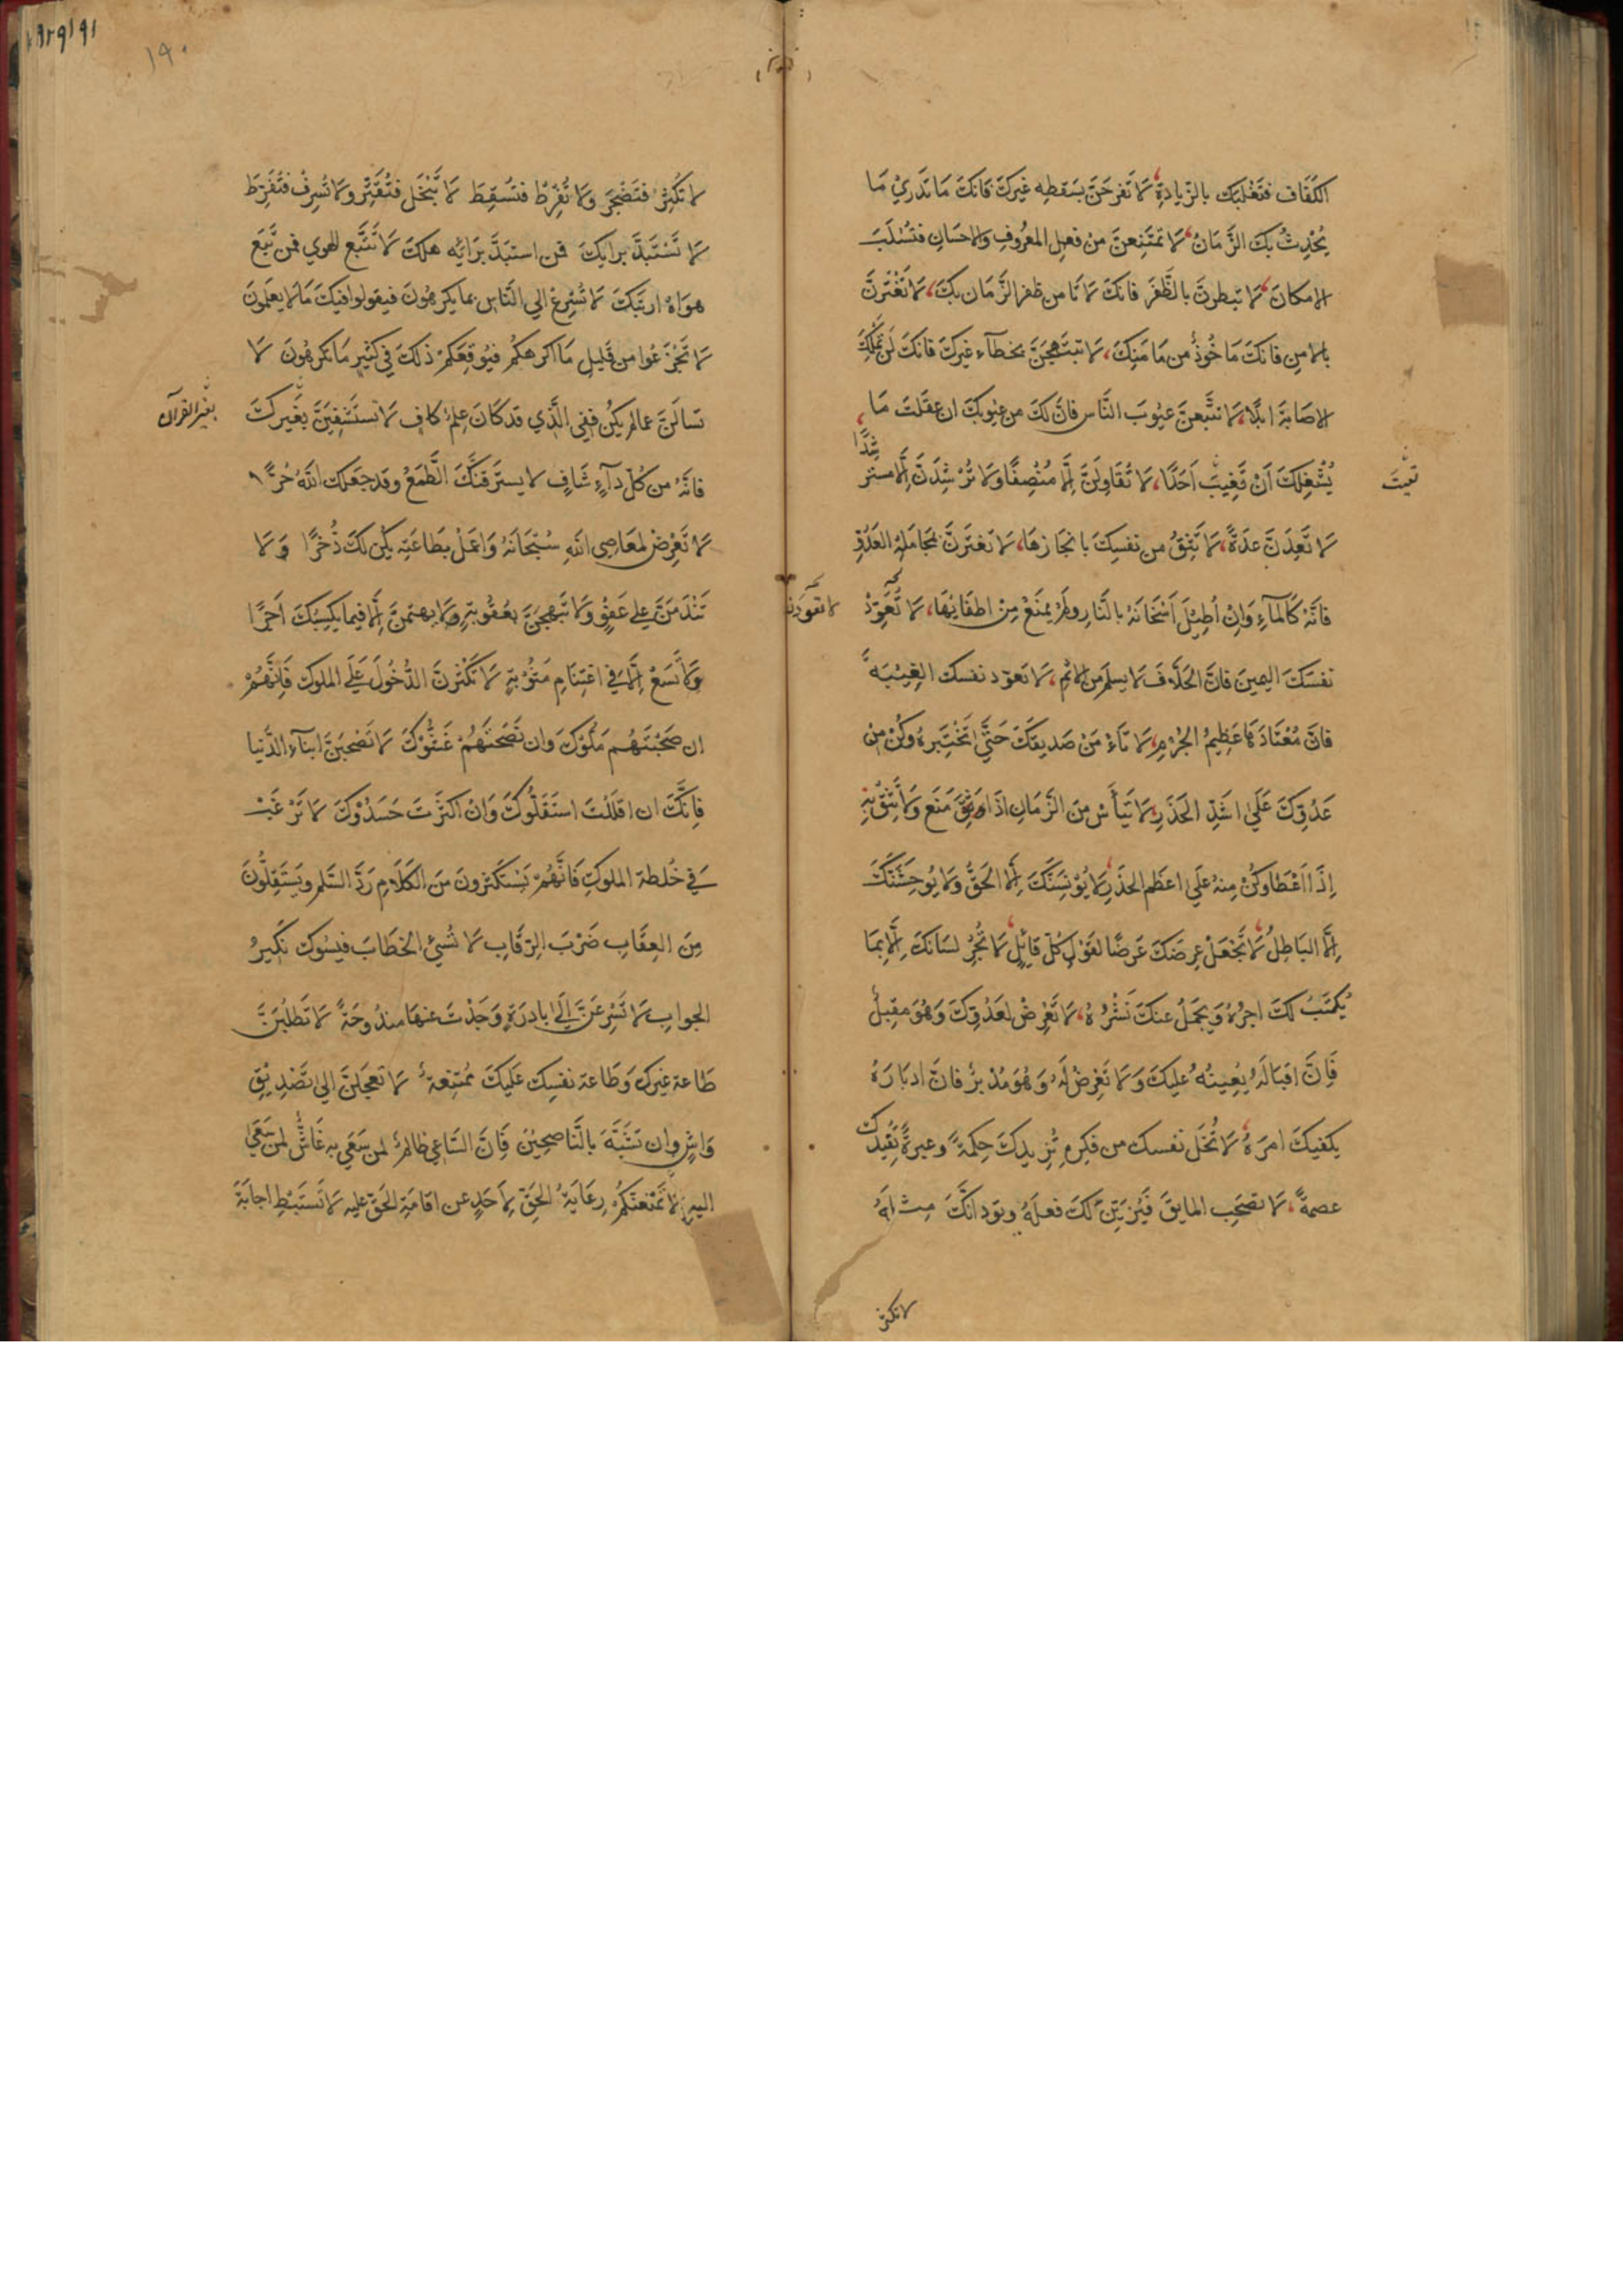 الكفاف فتغلبك بالزّيادة لا تفرحنّ بسقطه غيرك فانك ما تدري ما
يُحْدِثُ بك الزّمان لا تمتنعنّ من فعل المعروف والاحسان فتسلب
الامكان لا تبطرنّ بالظّفر فانك لا تامن ظفر الزّمان بك لا تغترنّ
بالامن فانك ماخوذٌ من مامنك لا تبتهجنّ بخطآء غيرك فانك لن تملك
الاصابة ابدًا لا تتّبعنّ عيوب النّاس فان لك من عيوبك ان عقلت ما
يُشْغِلك أن تغيبَ أحدًا لا تقاولنّ الّا منصفًا ولا ترشدنّ الّا مستر
شدًا
تعيبَ
لا تعدنّ عدة لا تثقُ من نفسك بانجازها لا تغترنّ بمجاملة العدوّ
فانّه كالمآء وان أطيل اسخانه بالنّار ولم يمنع من اطفايها لا تعوّد
لا تعودنّ
نفسك اليمين فانّ الحلّاف لا يسلم من الاثم لا تعوّد نفسك الغيبة
فانّ معتادها عظيم الجرم لا تامن صديقك حتّى تختبره وكن من
عدوّك على اشدّ الحذر لا تيأس من الزّمان اذا منع ولا تثق به
اذا اعطا وكن منه على اعظم الحذر لا يؤنسنّك الّا الحقّ ولا يوحشنّك
الّا الباطل لا تجعل عرضك غرضًا لقول كلّ قائل لا تجر لسانك الّا بما
يُكتب لك اجره ويجمل عنك نشره لا تعرض لعدوّك وهو مقبلٌ
فانّ اقباله يعينه عليك ولا تعرض له وهو مدبرٌ فانّ ادباره
يكفيك امره لا تخل نفسك من فكرم تزيدك حكمةً وعبرةً تفيدك
عصمةً لا تصحب المايق فيزيّن لك فعله ويودّ انّك مثله
لا تكثر
١٩٠
لا تكثر فتضجر ولا تفرط فتسقط لا تبخل فتقتر ولا تسرف فتفرط
لا تستبدّ برايك فمن استبدّ برايه هلك لا تتّبع الهوي فمن تبع
هواه ارتبك لا تسرع الي النّاس بما يكرهون فيقولوا فيك ما لا يعلمون
لا تجزعوا من قليل ما اكرهكم فيوقعكم ذلك في كثير ما تكرهون لا
تسالنّ عمّا لم يكن ففي الّذي قد كان علمٌ كاف لا تستشفينّ بغيرك
بغير القرآن
فانّه من كلّ دآءٍ شاف لا يسترقنّك الطّمع وقد جعلك الله حرًّا
لا تعرض لمعاصي الله سبحانه واعمل بطاعته يكن لك ذخرًا ولا
تندمنّ علي عفو ولا تبهجنّ بعقوبة ولا يهتمنّ الّا فيما يكسبك اجرًا
ولا تسع الّا في اغتنام مثوبة لا تكثرنّ الدّخول علي الملوك فانّهم
ان صحبتهم ملّوك وان نصحتهم غشّوك لا تصحبنّ ابنآء الدّنيا
فانّك ان اقللت استقلّوك وان اكثرت حسدوك لا ترغب
في خلطة الملوك فانّهم يستكثرون من الكلام ردّ السّلم ويستقلّون
من العقاب ضرب الرّقاب لا تسئ الخطاب فيسوك نكير
الجواب لا تسرعنّ الى بادرة وجدت عنها مندوحةً لا تطلبنّ
طاعة غيرك وطاعة نفسك عليك ممتنعةٌ لا تعجلنّ الى تصديق
واشٍ وان تشبّه بالنّاصحين فانّ السّاعي ظالمٌ لمن سعي به غاشٌ لمن سعي
اليه لا تمنعنّكم رعاية الحقّ لأحدٍ عن اقامة الحقّ عليه لا تستبط اجابة